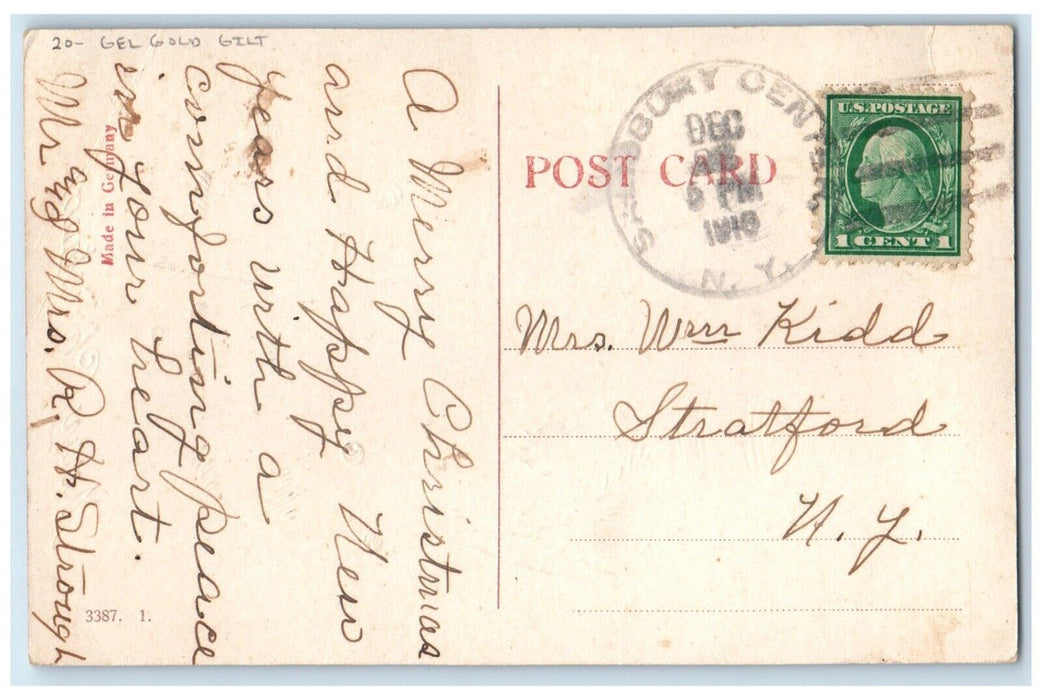 20- GEL GOLD GILT
A Merry Christmas
and Happy New
Years with a
comforting peace
in your heart.
Mr and Mrs. R. H. Strough
Made in Germany
3387. 1.
POST CARD
SALISBURY CENTER
DEC
PM
N. Y.
U.S. POSTAGE
1 CENT 1
Mrs. Wm Kidd
Stratford
N. Y.